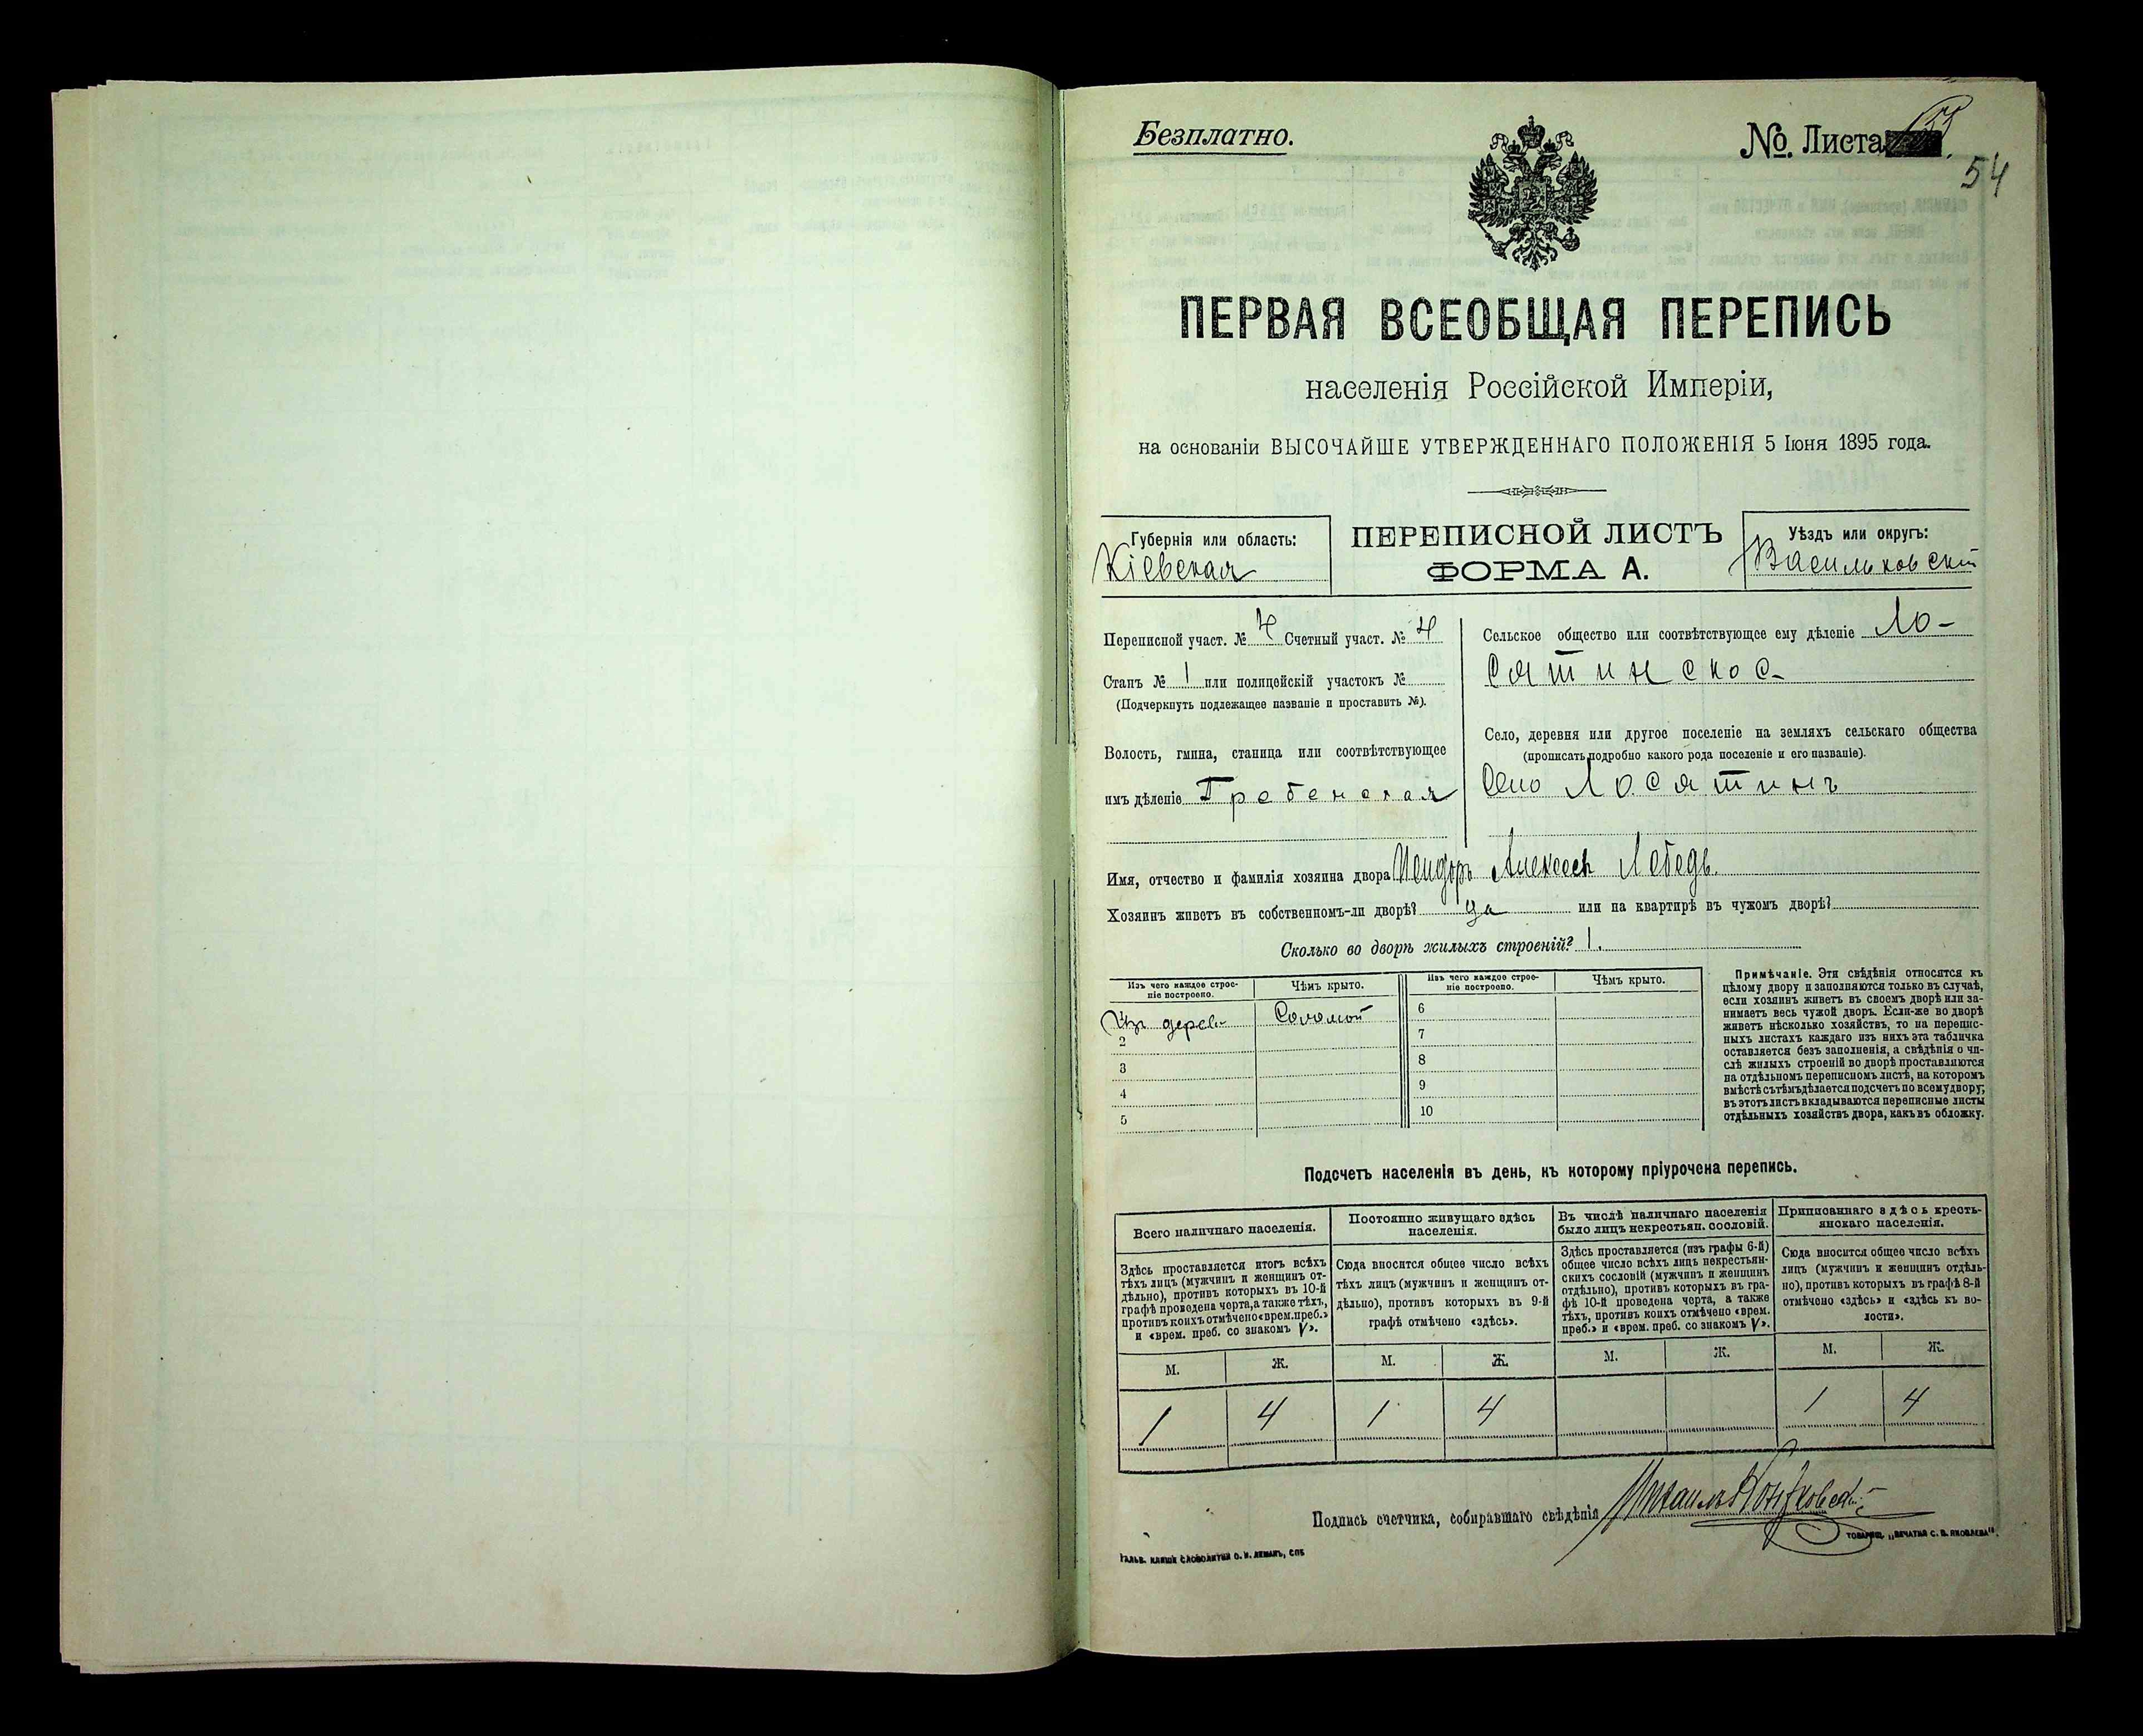 Безплатно.
No. Листа
54
ПЕРВАЯ ВСЕОБЩАЯ ПЕРЕПИСЬ
населенія Россійской Имперіи,
на основаніи ВЫСОЧАЙШЕ УТВЕРЖДЕННАГО ПОЛОЖЕНІЯ 5 Іюня 1895 года.
Губернія или область:
Кіевская
ПЕРЕПИСНОЙ ЛИСТЪ
ФОРМА А.
Уѣздъ или округъ:
Васильковскій
Переписной участ. № 4 Счетный участ. № 4
Станъ № 1 или полицейскій участокъ №
(Подчеркнуть подлежащее названіе и проставить №).
Волость, гмина, станица или соотвѣтствующее
имъ дѣленіе Гребенская
Сельское общество или соотвѣтствующее ему дѣленіе Ло-
сятинское
Село, деревня или другое поселеніе на земляхъ сельскаго общества
(прописать подробно какого рода поселеніе и его названіе).
Село Лосятинъ
Имя, отчество и фамилія хозяина двора Исидоръ Алексеев Лебедь.
Хозяинъ живетъ въ собственномъ-ли дворѣ? да или на квартирѣ въ чужомъ дворѣ?
Сколько во дворѣ жилыхъ строеній? 1.
Изъ чего каждое строе-
ніе построено.
Чѣмъ крыто.
Изъ чего каждое строе-
ніе построено.
Чѣмъ крыто.
Изъ дерева Соломой
2
3
4
5
6
7
8
9
10
Примѣчаніе. Эти свѣдѣнія относятся къ
цѣлому двору и заполняются только въ случаѣ,
если хозяинъ живетъ въ своемъ дворѣ или за-
нимаетъ весь чужой дворъ. Если-же во дворѣ
живетъ нѣсколько хозяйствъ, то на перепис-
ныхъ листахъ каждаго изъ нихъ эта табличка
оставляется безъ заполненія, а свѣдѣнія о чи-
слѣ жилыхъ строеній во дворѣ проставляются
на отдѣльномъ переписномъ листѣ, на которомъ
вмѣстѣ съ тѣмъ дѣлается подсчетъ по всему двору;
въ этотъ листъ вкладываются переписные листы
отдѣльныхъ хозяйствъ двора, какъ въ обложку.
Подсчетъ населенія въ день, къ которому пріурочена перепись.
Всего наличнаго населенія.
Здѣсь проставляется итогъ всѣхъ
тѣхъ лицъ (мужчинъ и женщинъ от-
дѣльно), противъ которыхъ въ 10-й
графѣ проведена черта, а также тѣхъ,
противъ коихъ отмѣчено «врем. преб.»
и «врем. преб. со знакомъ V».
Постоянно живущаго здѣсь
населенія.
Сюда вносится общее число всѣхъ
тѣхъ лицъ (мужчинъ и женщинъ от-
дѣльно), противъ которыхъ въ 9-й
графѣ отмѣчено «здѣсь».
Въ числѣ наличнаго населенія
было лицъ некрестьян. сословій.
Здѣсь проставляется (изъ графы 6-й)
общее число всѣхъ лицъ некрестьян-
скихъ сословій (мужчинъ и женщинъ
отдѣльно), противъ которыхъ въ гра-
фѣ 10-й проведена черта, а также
тѣхъ, противъ коихъ отмѣчено «врем.
преб.» и «врем. преб. со знакомъ V».
Приписаннаго здѣсь кресть-
янскаго населенія.
Сюда вносится общее число всѣхъ
лицъ (мужчинъ и женщинъ отдѣль-
но), противъ которыхъ въ графѣ 8-й
отмѣчено «здѣсь» и «здѣсь къ во-
лости».
М. Ж. М. Ж. М. Ж. М. Ж.
1 4 1 4 1 4
Подпись счетчика, собиравшаго свѣдѣнія Михаилъ
ТОВАРИЩ. „ПЕЧАТНЯ С. П. ЯКОВЛЕВА".
ГАЛЬВ. КЛИШЕ СЛОВОЛИТНИ О. И. ЛЕМАНЪ, СПБ